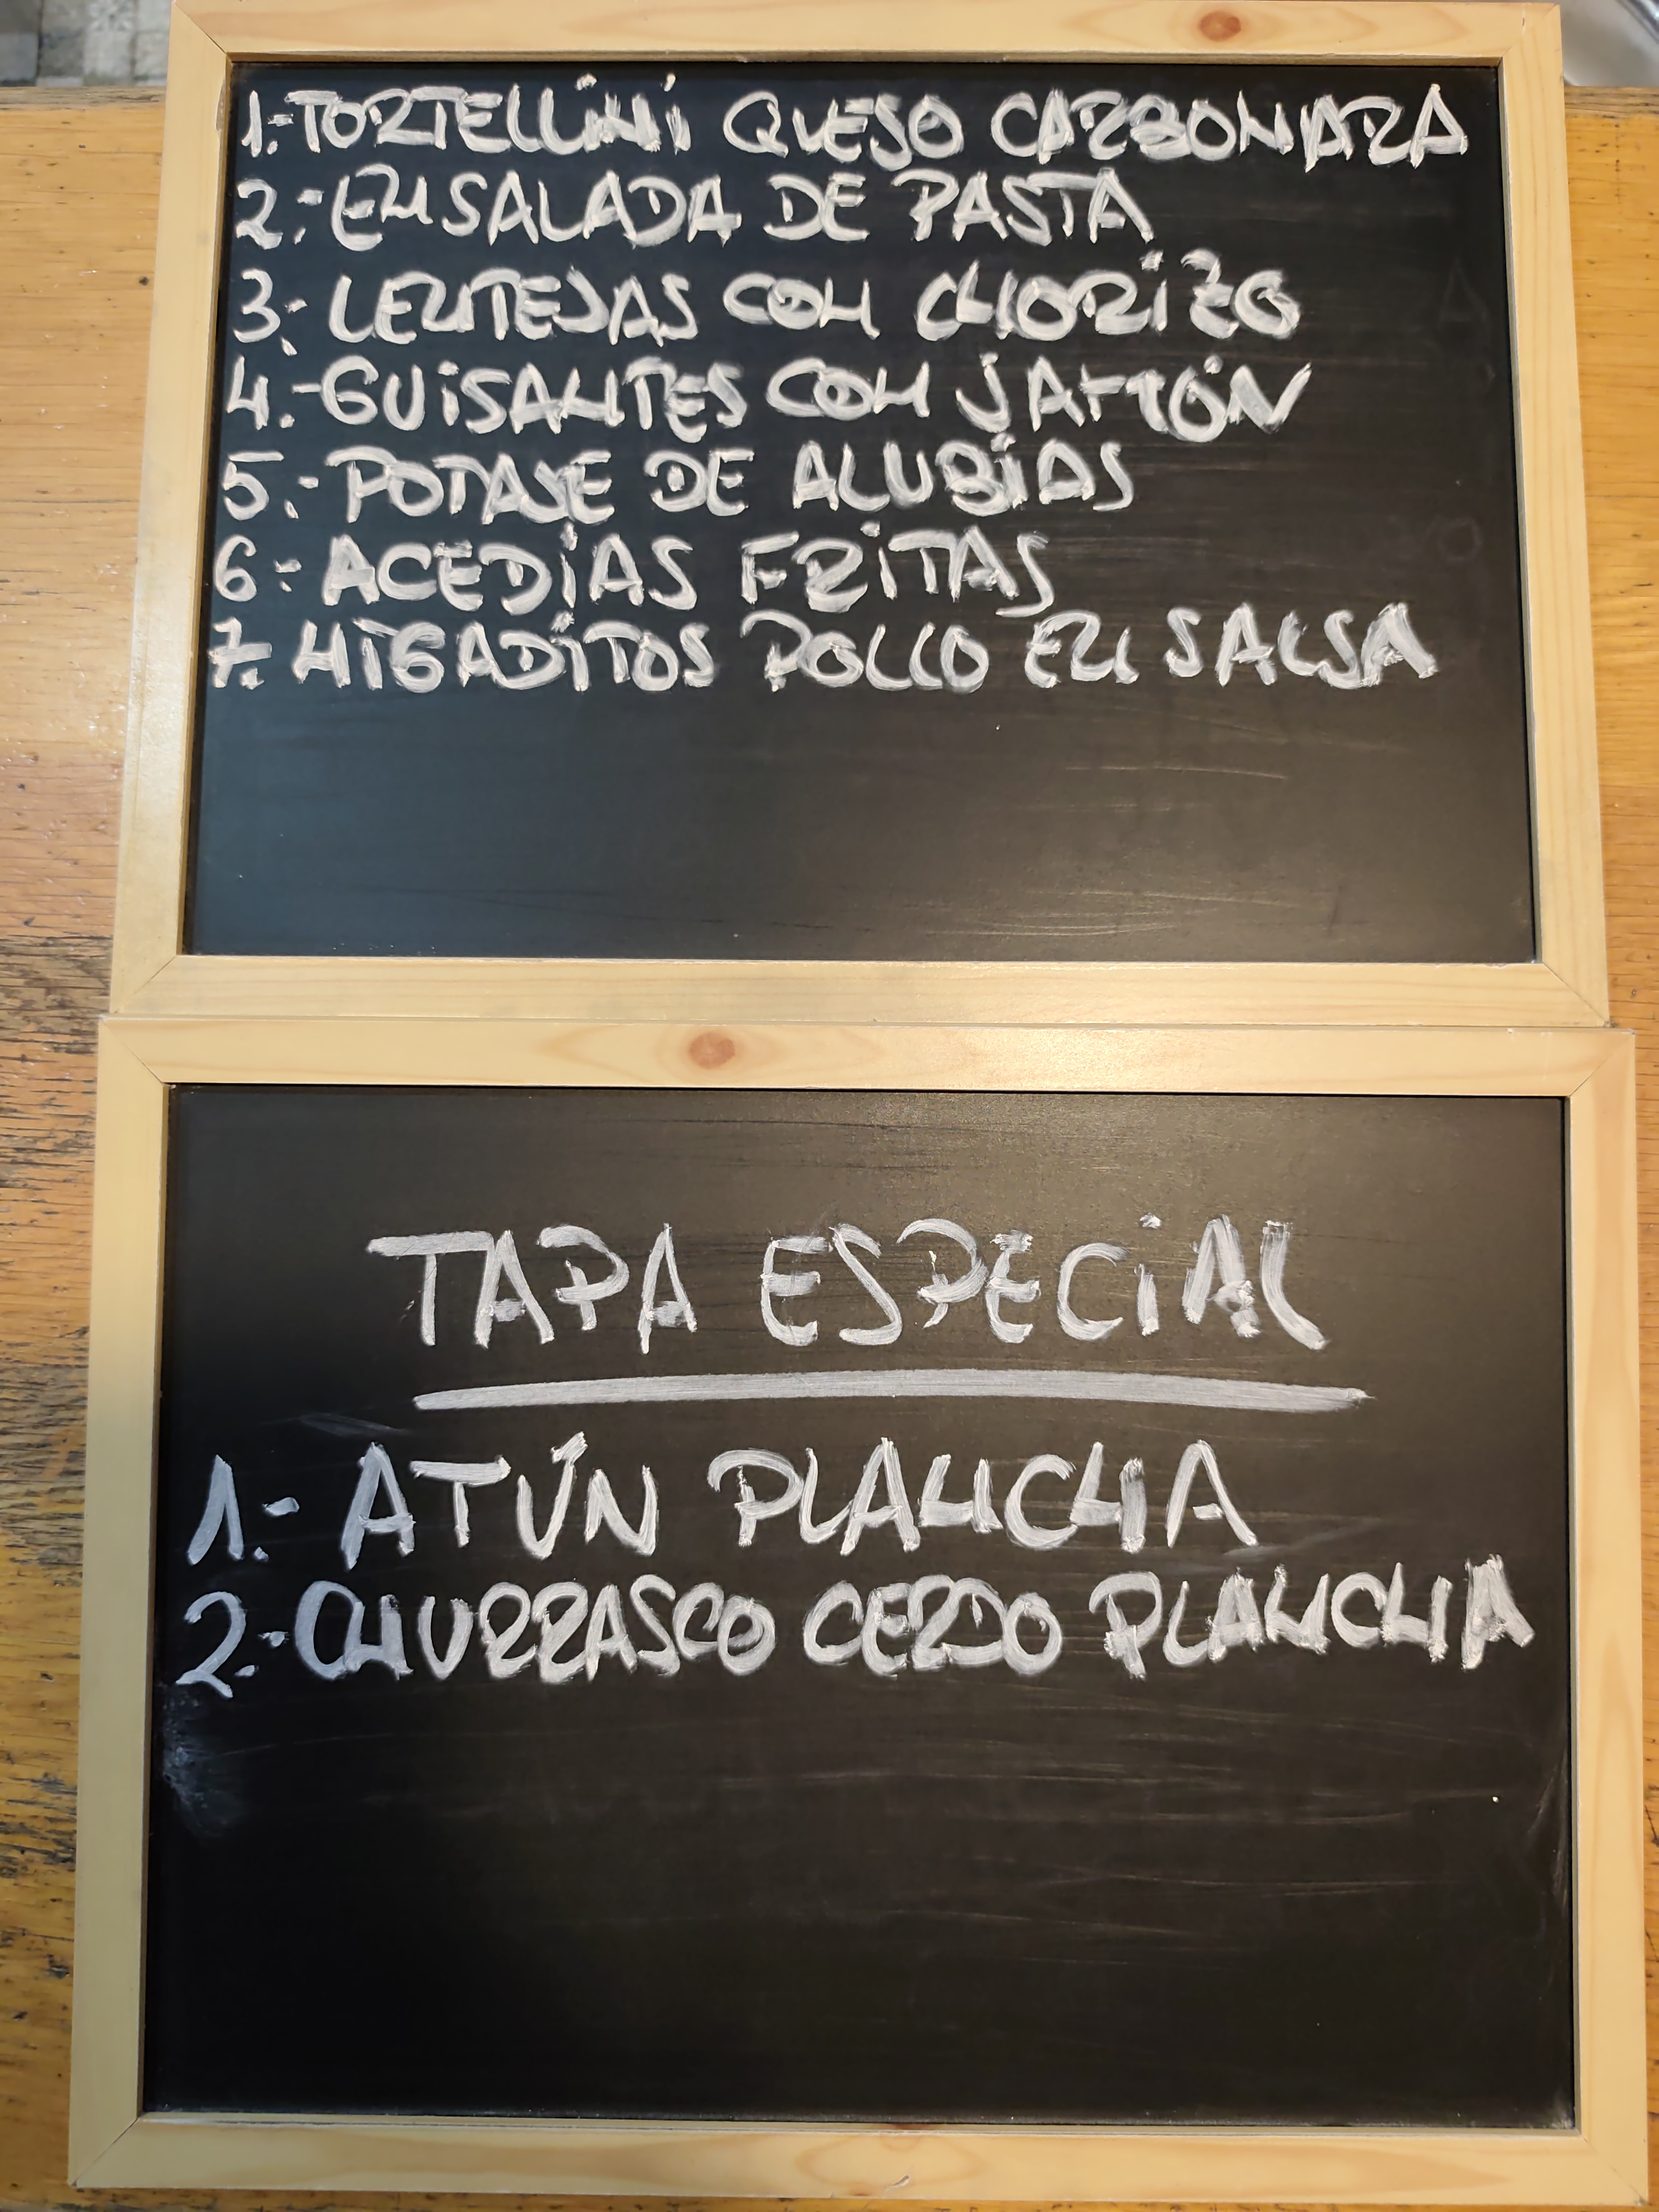 1.-TORTELLiNi QUESO CARBONARA
2.-ENSALADA DE PASTA
3.-LENTEJAS CON CHORiZO
4.-GUiSANTES CON JAMÓN
5.-POTAJE DE ALUBiAS
6.-ACEDÍAS FRiTAS
7.-HIGADiTOS POLLO EN SALSA
TAPA ESPECiAL
1.-ATÚN PLANCHA
2.-CHURRASCO CERDO PLANCHA